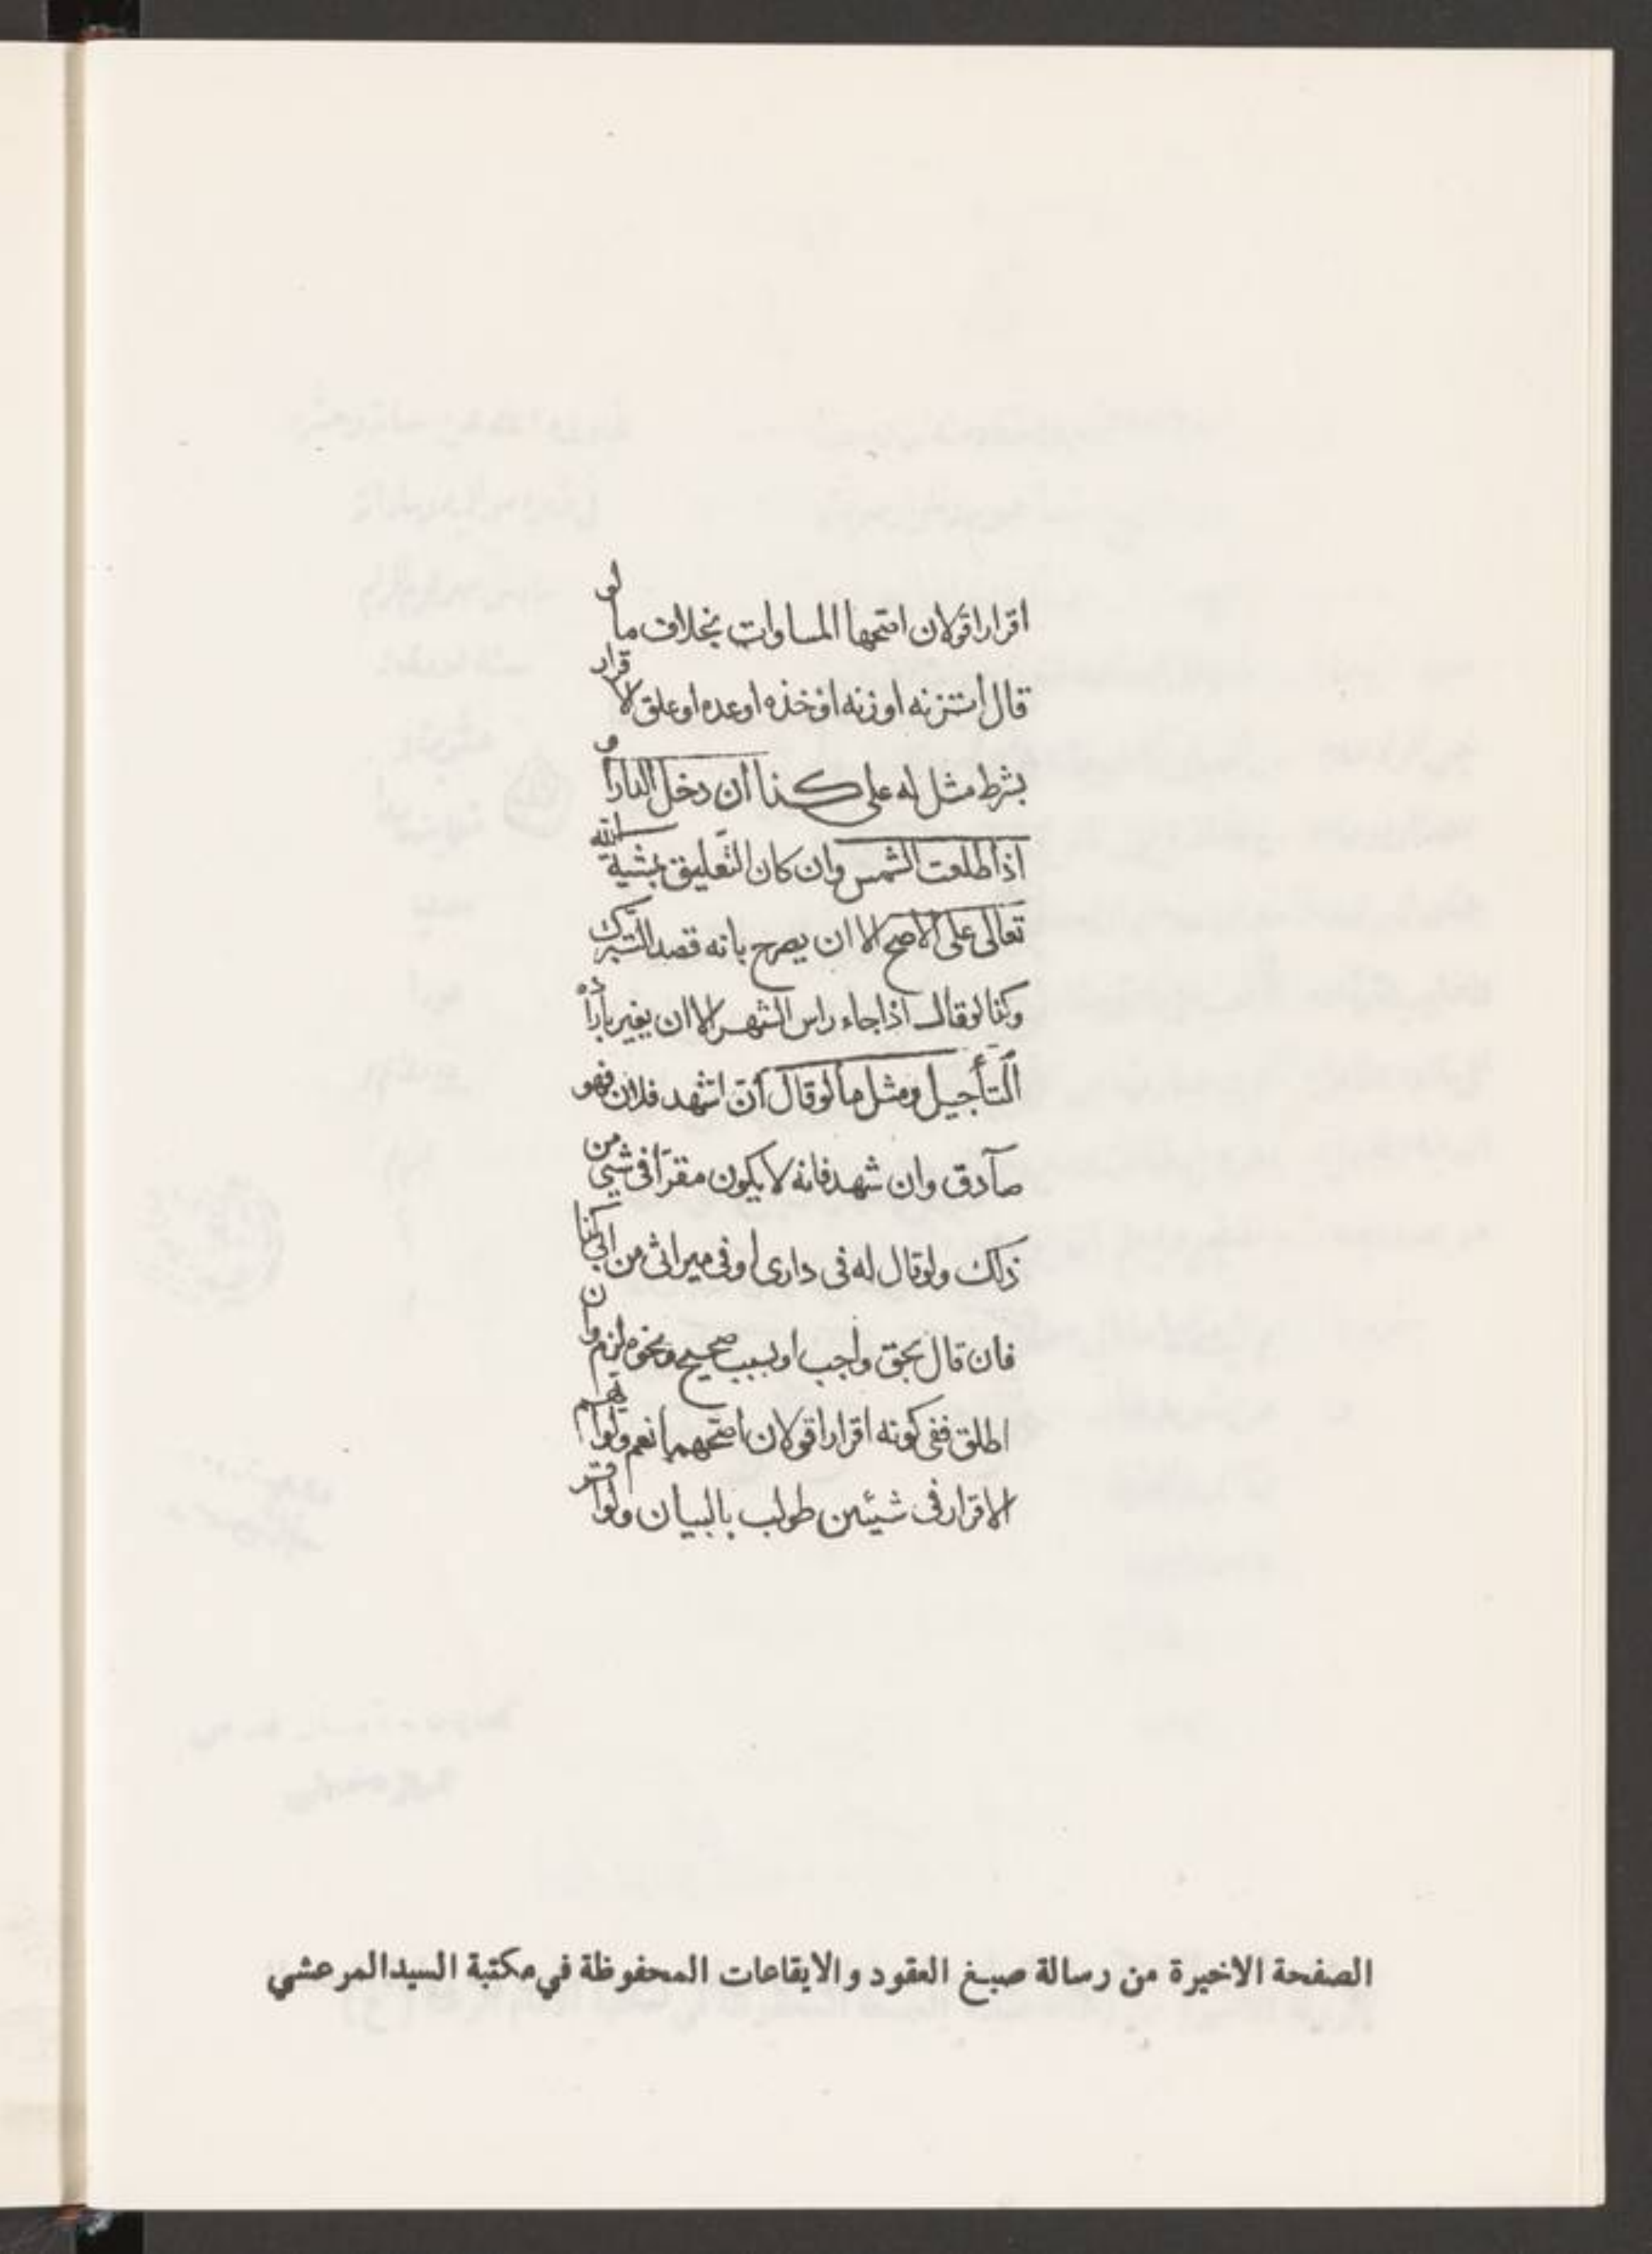 اقرارا قولان اصحهما المساوات بخلاف ما لو
قال اتزنه او زنه او خذه او عده او علق الاقرار
بشرط مثل له على كذا ان دخل الدار او
اذا طلعت الشمس وان كان التعليق بمشية الله
تعالى على الاصح الا ان يصرح بانه قصد التبرك
وكذا لو قال اذا جاء راس الشهر الا ان يفسر بارادة
التأجيل ومثل ما لو قال ان شهد فلان فهو
صادق وان شهد فانه لا يكون مقرا فى شئ من
ذلك ولو قال له فى دارى او فى ميراثى من ابى كذا
فان قال بحق واجب او بسبب صحيح ونحوه لزم وان
اطلق ففى كونه اقرارا قولان اصحهما نعم ولو ابهم
الاقرار فى شيئين طولب بالبيان ولو اقر
الصفحة الاخيرة من رسالة صيغ العقود والايقاعات المحفوظة في مكتبة السيد المرعشي